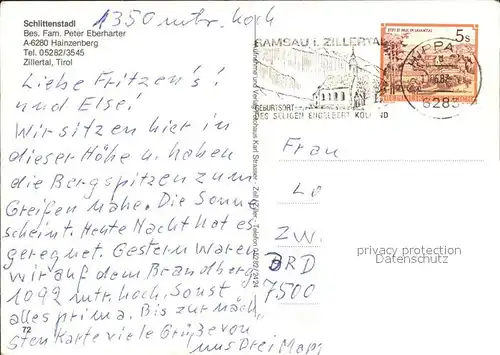 Schlittenstadl
Bes. Fam. Peter Eberharter
A-6280 Hainzenberg
Tel. 05282/3545
Zillertal, Tirol
1350 mtr. hoch
Liebe Fritzen's!
und Else!
Wir sitzen hier in
dieser Höhe u. haben
die Bergspitzen zum
Greifen nahe. Die Sonne
scheint. Heute Nacht hat es
geregnet. Gestern waren
wir auf dem Brandberg
1092 mtr. hoch. Sonst
alles prima. Bis zur näch
sten Karte viele Grüße von
uns Drei
72
Aufnahme und Verlag: Fotohaus Karl Strasser - Zell Ziller - Telefon 05282/2424
RAMSAU i. ZILLERTAL
GEBURTSORT
DES SELIGEN ENGELBERT KOLLAND
STIFT ST. PAUL IM LAVANTTAL
5 s
6283
Frau
Lo
ZW.
BRD
7500
privacy protection
Datenschutz